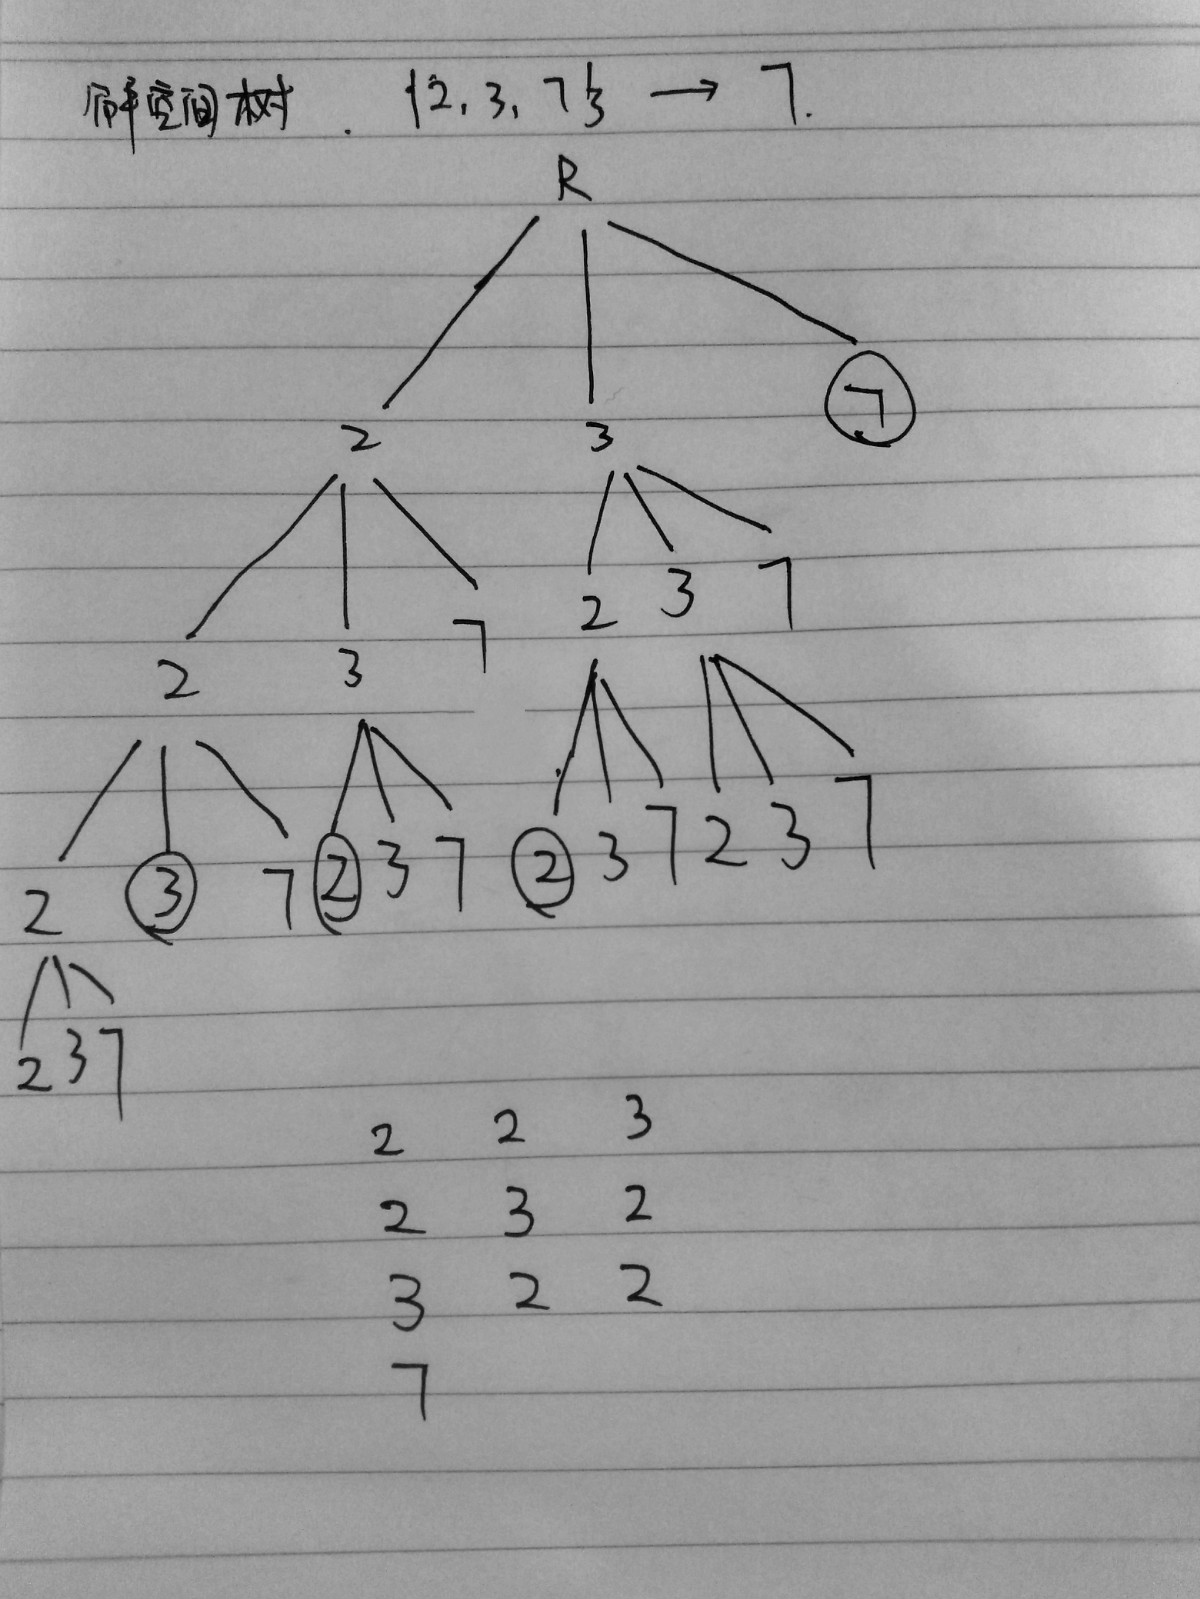 解空间树. {2, 3, 7} → 7.
R
2 3 7
2 3 7 2 3 7
2 3 7 2 3 7 2 3 7 2 3 7
2 3 7
2 2 3
2 3 2
3 2 2
7